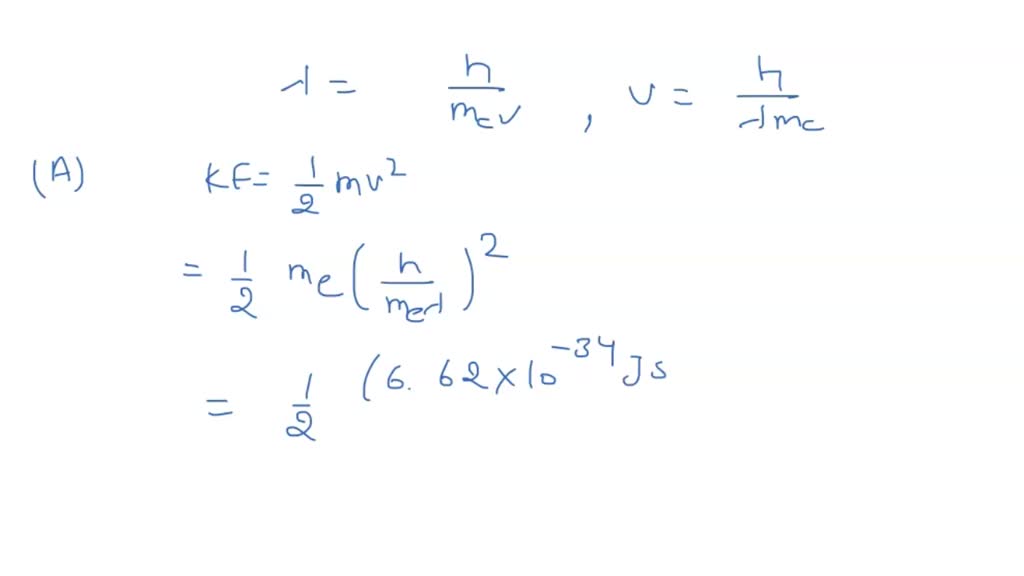 λ = h/(m_e v) , v = h/(λ m_e)
(A) KE = 1/2 mv²
= 1/2 m_e (h/(m_e λ))²
= 1/2 (6.62×10⁻³⁴ Js